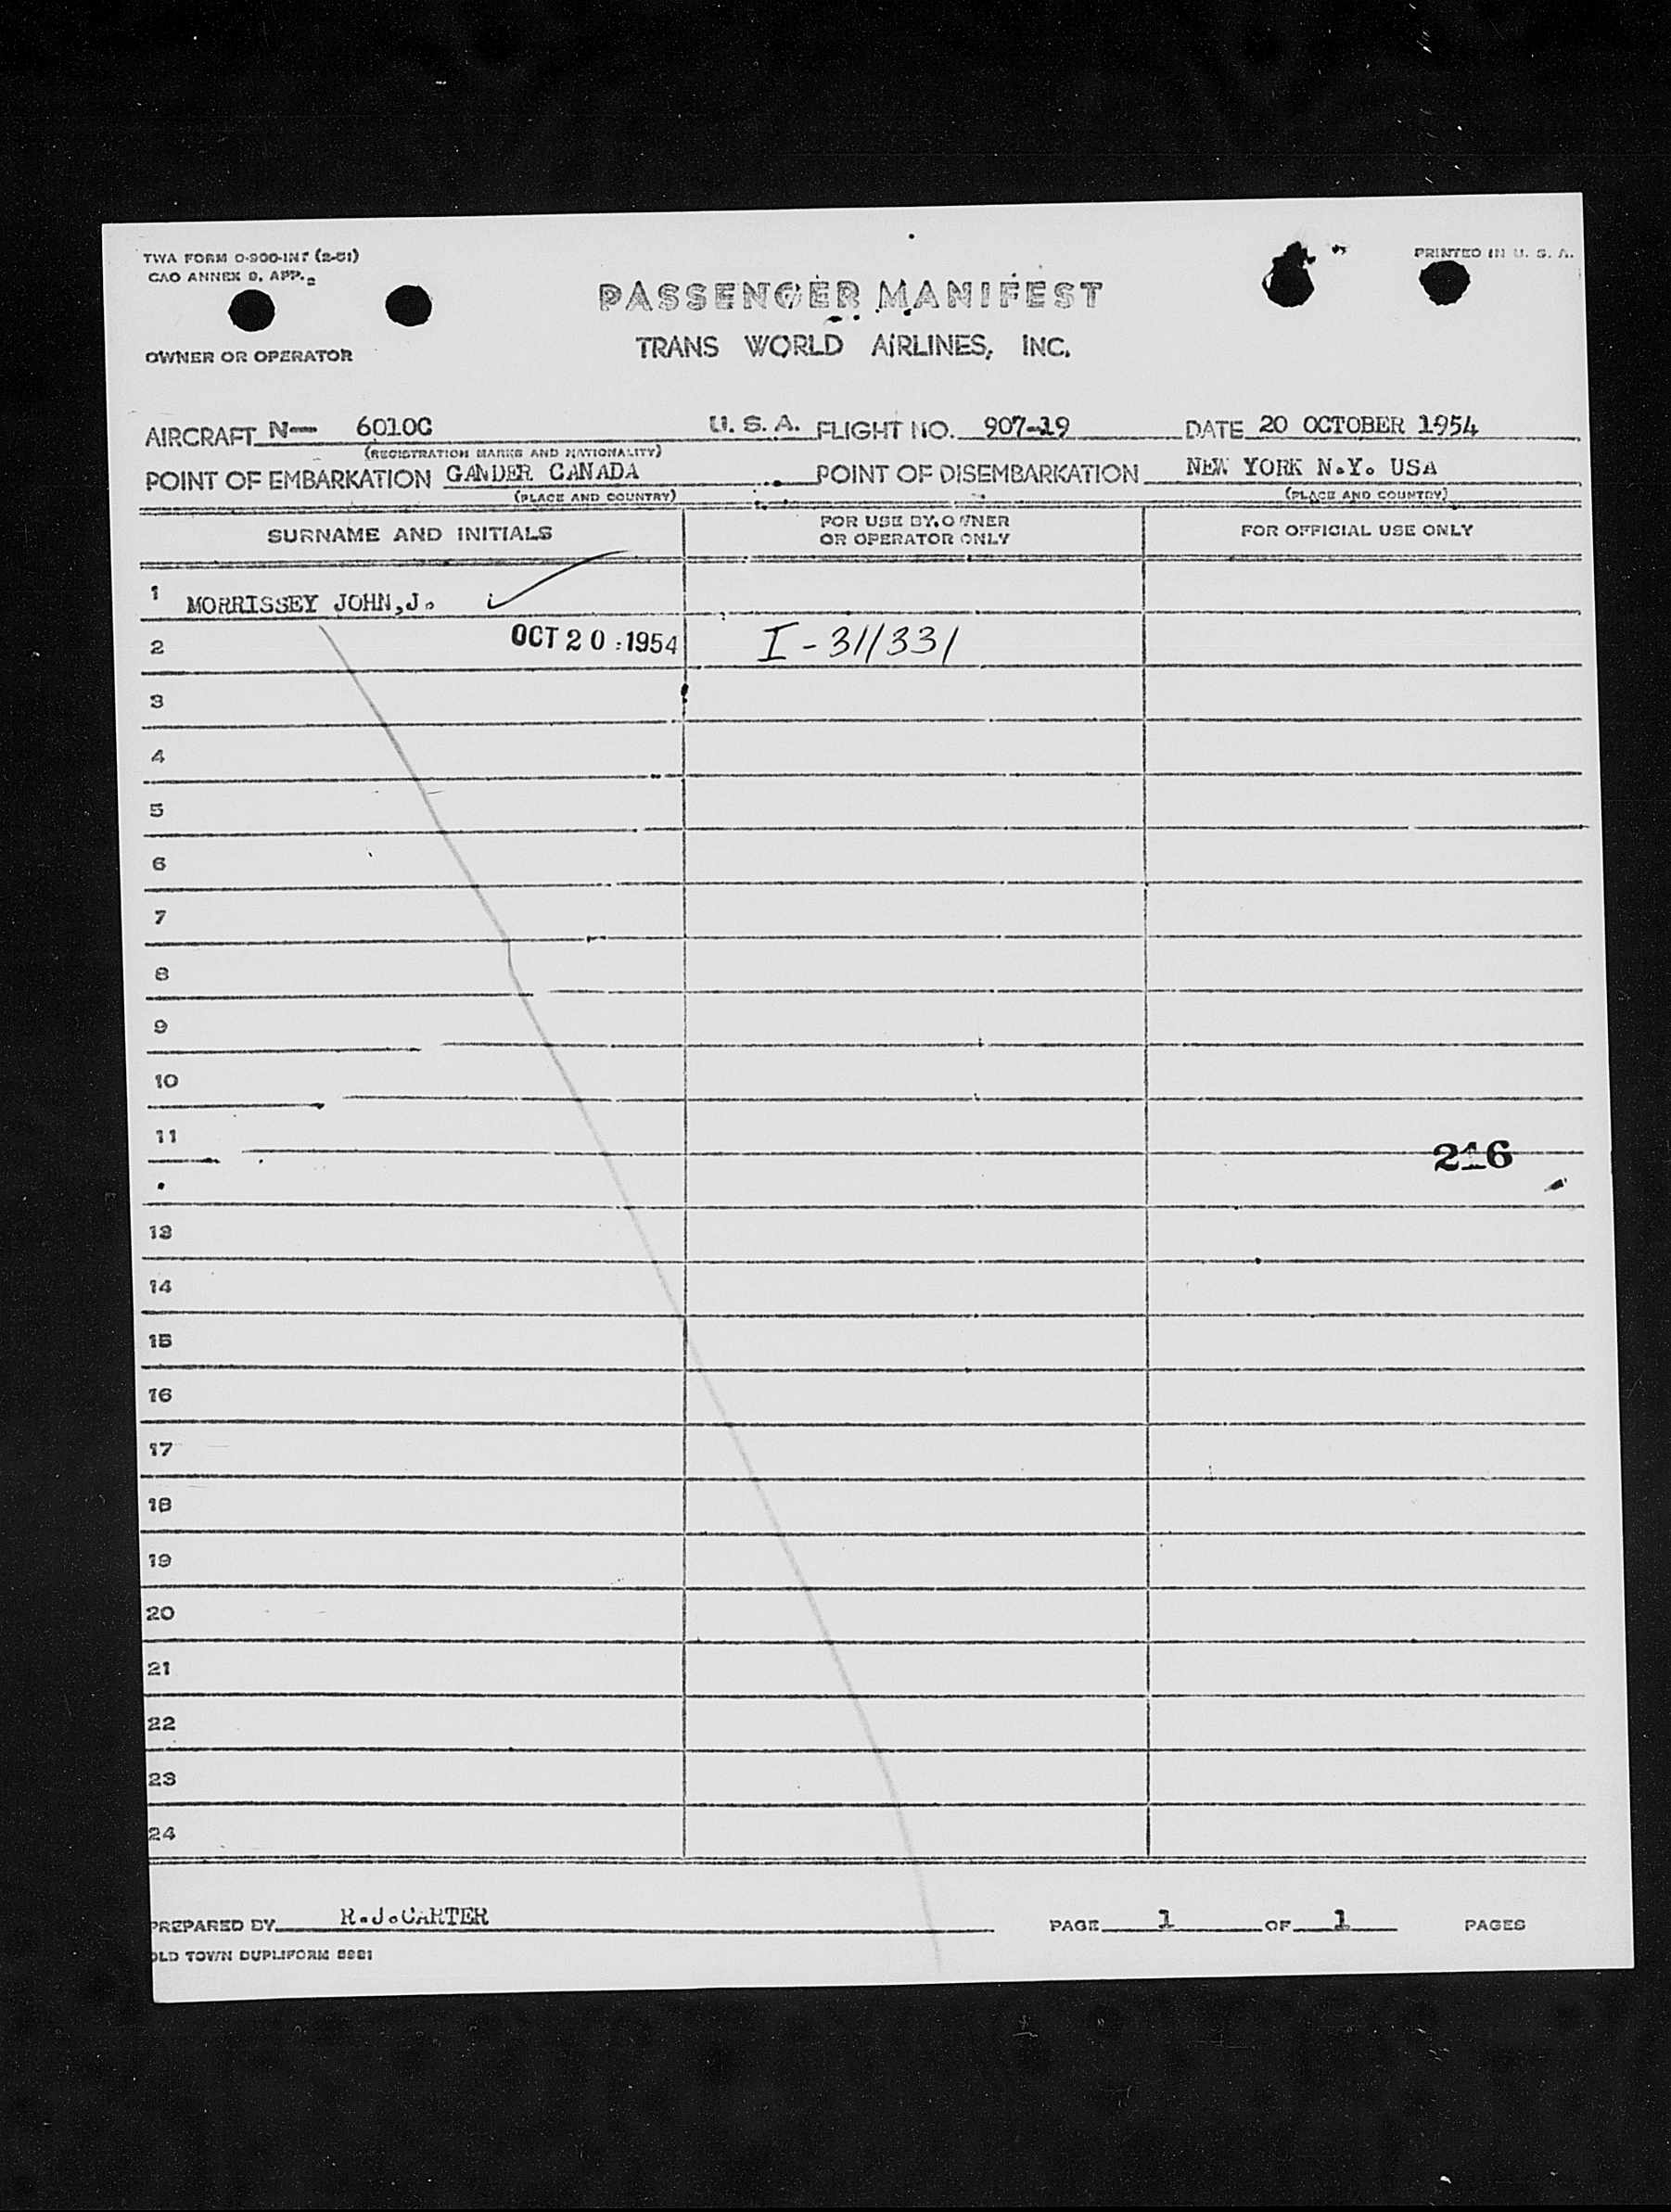 TWA FORM O-900-INT (2-51)
PRINTED IN U. S. A.
CAO ANNEX 9, APP. 2
PASSENGER MANIFEST
OWNER OR OPERATOR
TRANS WORLD AIRLINES, INC.
AIRCRAFT N— 6010C U. S. A. FLIGHT NO. 907-19 DATE 20 OCTOBER 1954
(REGISTRATION MARKS AND NATIONALITY)
POINT OF EMBARKATION GANDER CANADA POINT OF DISEMBARKATION NEW YORK N.Y. USA
(PLACE AND COUNTRY) (PLACE AND COUNTRY)
SURNAME AND INITIALS FOR USE BY OWNER OR OPERATOR ONLY FOR OFFICIAL USE ONLY
1 MORRISSEY JOHN,J.
2 OCT 20 1954 I-311331
3
4
5
6
7
8
9
10
11
216
13
14
15
16
17
18
19
20
21
22
23
24
PREPARED BY R.J.CARTER PAGE 1 OF 1 PAGES
OLD TOWN DUPLIFORM